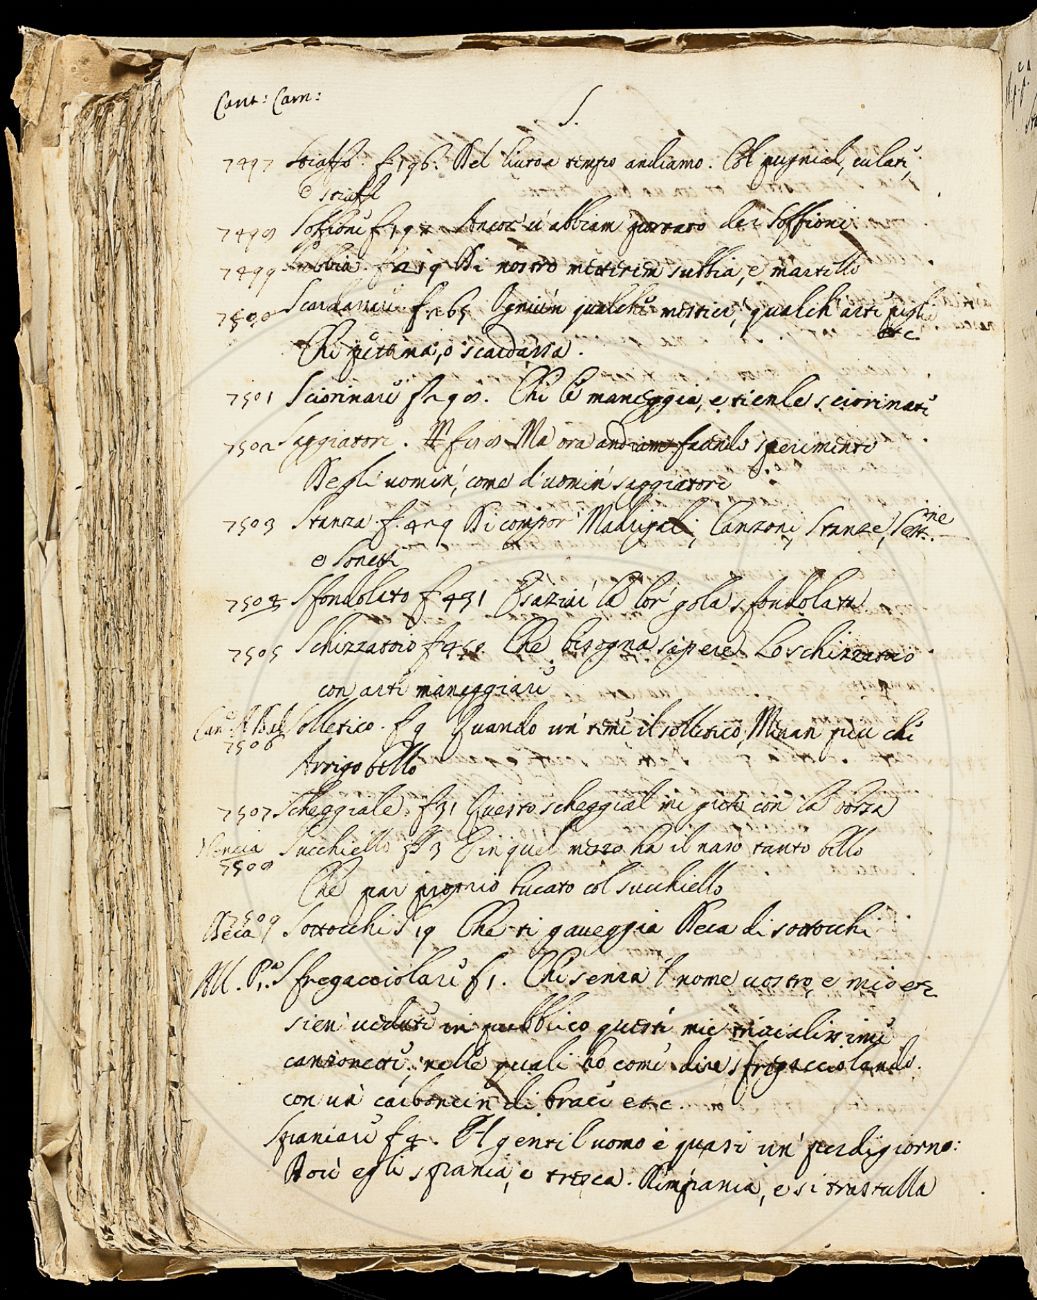 Cant: Carn:
S.
7497 Stiaffo. f. 196. Del
andiamo. Col pugnal, culate,
e stiaffi
7498 Soffioni f. Ancor' n' abbiam portato de i Soffioni
7499 Subbia. f. 219 Di nostro mestier in subbia, e martello
7500 Scardassare f. 265 Ognun qualche mestier, qualch' arte pigli
etc.
Chi pettina, o scardassa.
7501 Sciorinare f. 298. Chi le maneggia, e tienle sciorinate
7502 Saggiatori. Ma ora andiam facendo sperimenti
Degli uomin', come d' uomin' saggiatori
7503 Stanza f. 429 Di compor Madrigali, Canzoni, Stanze, Sestine
e Sonetti
7504 Sfondolato f. 431 E saziai la lor gola sfondolata
7505 Schizzatoio f. 458. Che bisogna sapere Lo schizzatoio
con arte maneggiare
Solletico. f. 9 Quando un teme il solletico
7506
Arrigobello
7507 Scheggiale. f. 31 Questo scheggial mi gitta con la borsa
Nencia Succhiello f. 3 E in quel mezzo ha il naso tanto bello
7508
Che par proprio bucato col succhiello
7509
Beca Sottocchi f. 19 Che ti gaveggia Beca di sottocchi
All. P.a Sfregacciolare f. 1. Chi senza 'l nome vostro, e mio etc
sien' vedute in pubblico queste mie trivialissime
canzonette, nelle quali ho come dire sfregacciolando
con un' carboncin' di brace etc.
Spaniare f. 4. Il gentiluomo è quasi un' perdigiorno:
Or egli spania, e tresca. Rimpania, e si trastulla